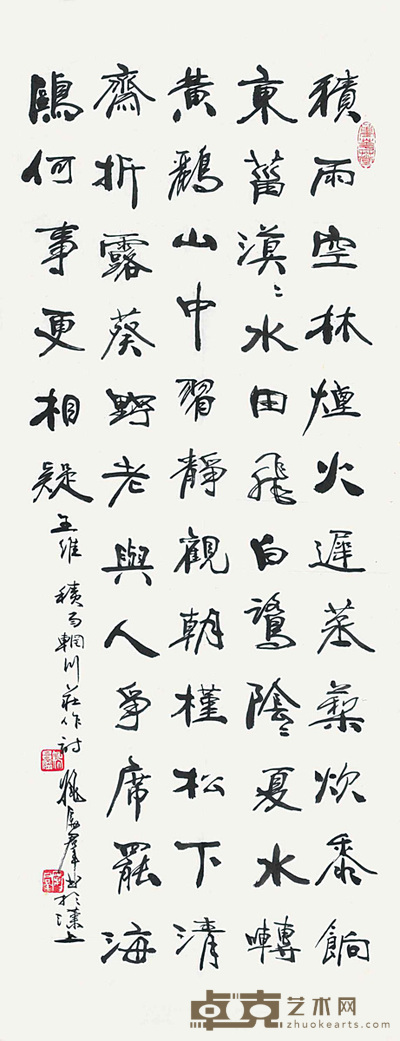 積雨空林煙火遲蒸藜炊黍餉
東菑漠〻水田飛白鷺陰〻夏水囀
黃鸝山中習靜觀朝槿松下清
齋折露葵野老與人爭席罷海
鷗何事更相疑 王維 積雨輞川莊作詩 群書於溱上
卓克艺术网
zhuokearts.com